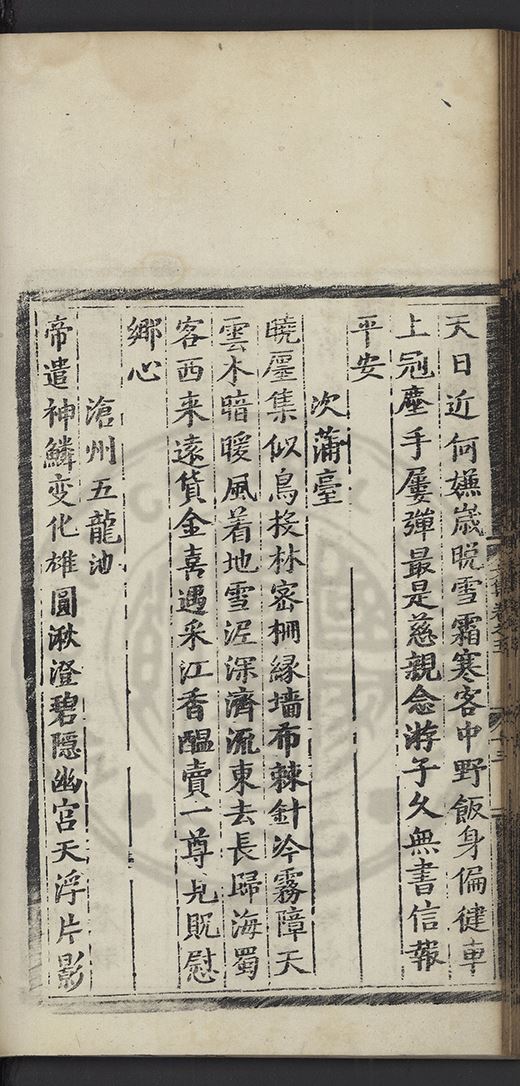 天日近何嫌歲晚雪霜寒客中野飯身偏健車
上冠塵手屢彈最是慈親念游子久無書信報
平安
次蒲臺
曉㕓集似鳥投林密柵緣墻布棘針冷霧障天
雲木暗暖風着地雪泥深濟流東去長歸海蜀
客西来遠貨金喜遇采江香醞賣一尊見貺慰
鄉心
滄州五龍池
帝遣神鱗变化雄圓湫澄碧隱幽宫天浮片影